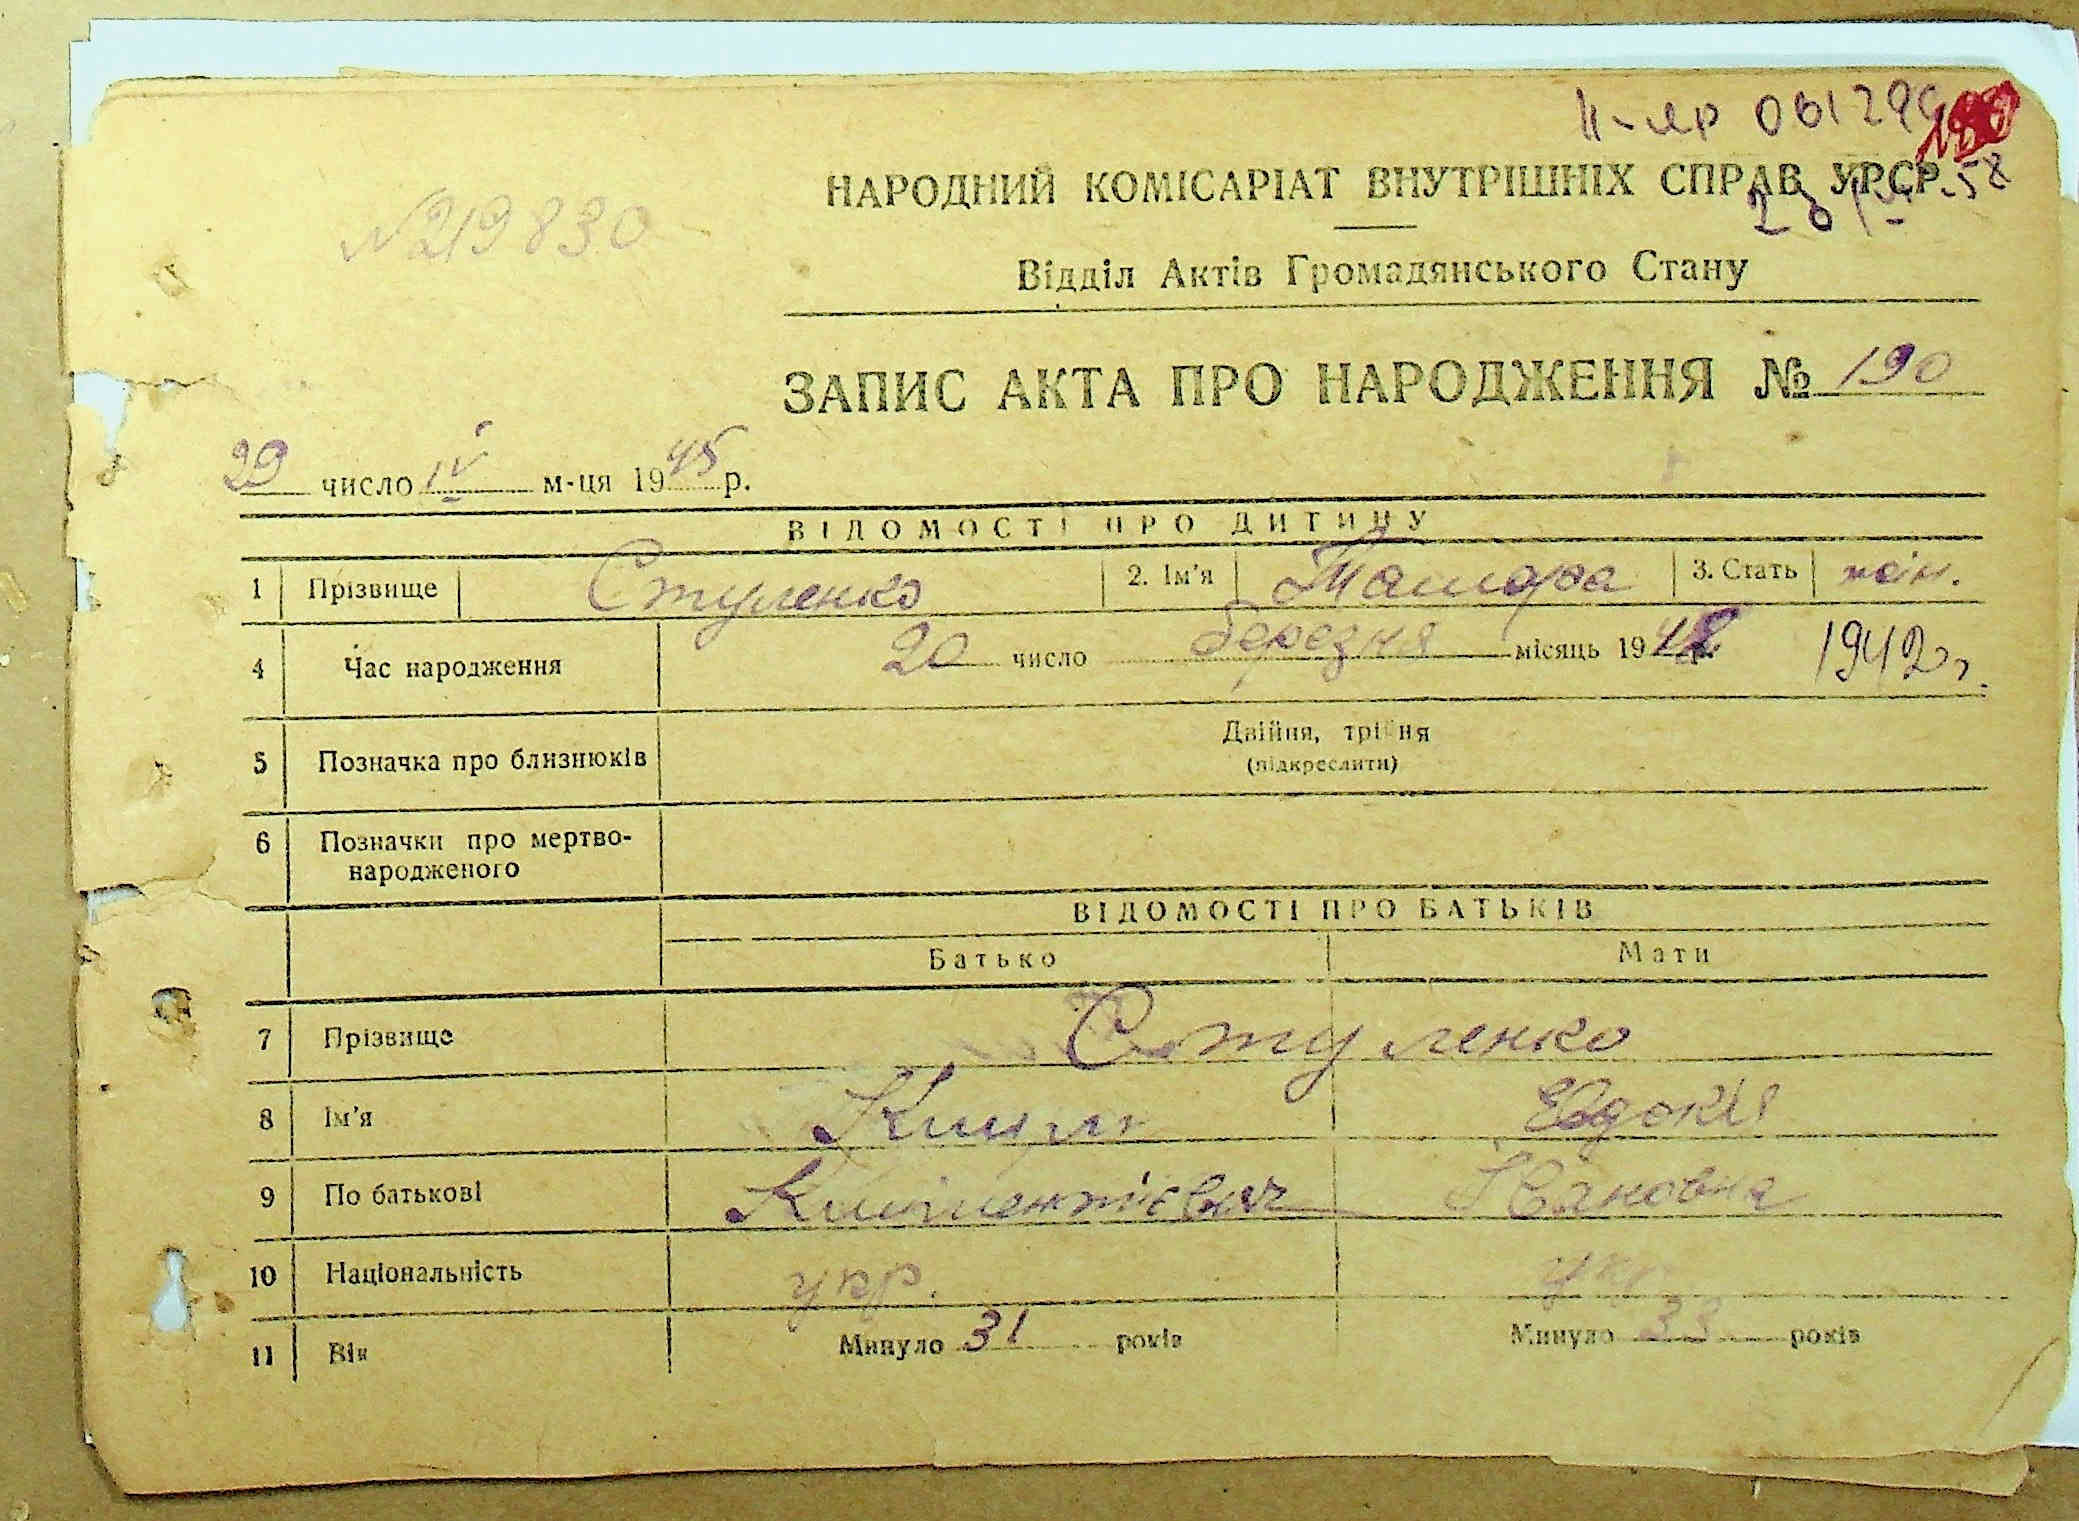 ІІ-ЯР 061299
НАРОДНИЙ КОМІСАРІАТ ВНУТРІШНІХ СПРАВ УРСР
№ 219830
Відділ Актів Громадянського Стану
ЗАПИС АКТА ПРО НАРОДЖЕННЯ № 190
29 число IV м-ця 1945 р.
ВІДОМОСТІ ПРО ДИТИНУ
1 Прізвище Стуленко 2. Ім'я Тамара 3. Стать жін.
4 Час народження 20 число березня місяць 1942 1942 г.
5 Позначка про близнюків Двійня, трійня
(підкреслити)
6 Позначки про мертво-
народженого
ВІДОМОСТІ ПРО БАТЬКІВ
Батько Мати
7 Прізвище Стуленко
8 Ім'я Євдокія
9 По батькові Івановна
10 Національність укр. укр
11 Вік Минуло 31 років Минуло 33 років